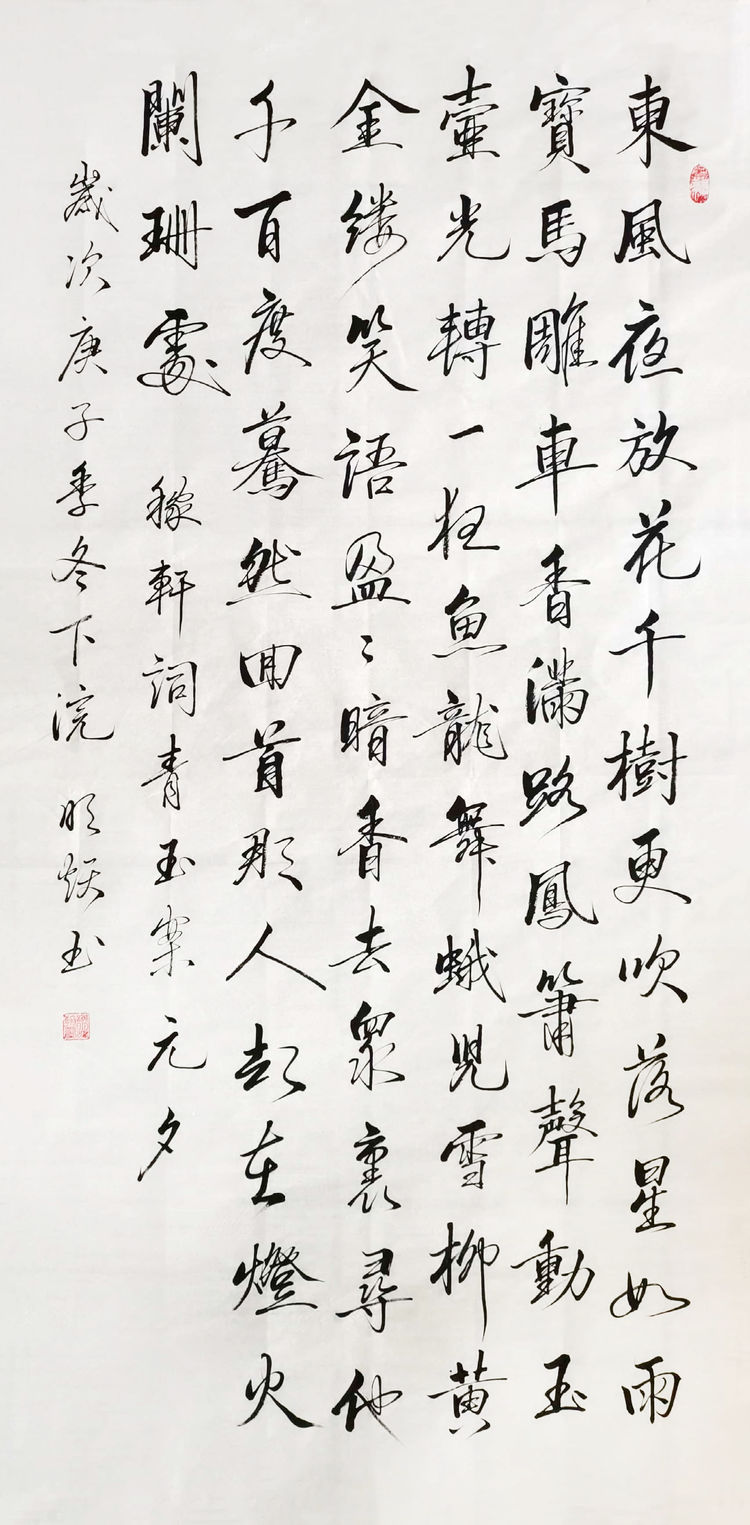 東風夜放花千樹更吹落星如雨
寶馬雕車香滿路鳳簫聲動玉
壺光轉一狂魚龍舞蛾兒雪柳黃
金縷笑語盈〻暗香去眾裏尋他
千百度驀然回首那人卻在燈火
闌珊處 稼軒詞青玉案元夕
歲次庚子季冬下浣 明書